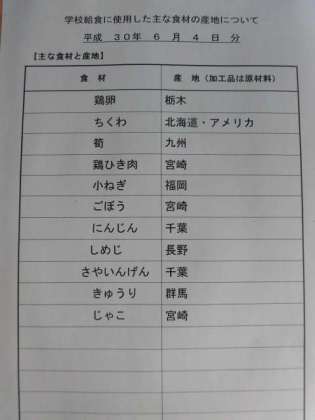 学校給食に使用した主な食材の産地について
平成 30年 6月 4日 分
【主な食材と産地】
食 材 産 地（加工品は原材料）
鶏卵 栃木
ちくわ 北海道・アメリカ
筍 九州
鶏ひき肉 宮崎
小ねぎ 福岡
ごぼう 宮崎
にんじん 千葉
しめじ 長野
さやいんげん 千葉
きゅうり 群馬
じゃこ 宮崎